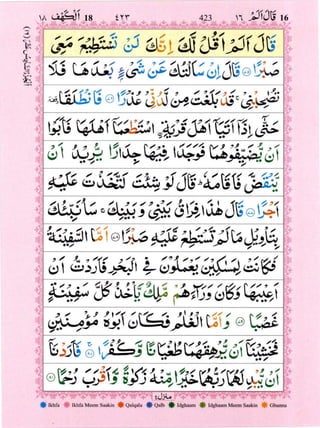 ١٨ الْكَهْف 18
٤٢٣
423
قَالَ أَلَمْ ١٦ 16
قَالَ اَلَمْ اَقُلْ لَّكَ اِنَّكَ لَنْ تَسْتَطِيْعَ مَعِيَ
صَبْرًا ۝٧٥ قَالَ اِنْ سَاَلْتُكَ عَنْ شَيْءٍۭ بَعْدَهَا فَلَا
تُصٰحِبْنِيْ ۚ قَدْ بَلَغْتَ مِنْ لَّدُنِّيْ عُذْرًا ۝٧٦ فَانْطَلَقَا
حَتّٰۤى اِذَاۤ اَتَيَاۤ اَهْلَ قَرْيَةِ ۨاسْتَطْعَمَاۤ اَهْلَهَا فَاَبَوْا
اَنْ يُّضَيِّفُوْهُمَا فَوَجَدَا فِيْهَا جِدَارًا يُّرِيْدُ اَنْ
يَّنْقَضَّ فَاَقَامَهٗ ؕ قَالَ لَوْ شِئْتَ لَتَّخَذْتَ عَلَيْهِ
اَجْرًا ۝٧٧ قَالَ هٰذَا فِرَاقُ بَيْنِيْ وَ بَيْنِكَ ۚ سَاُنَبِّئُكَ
بِتَاْوِيْلِ مَا لَمْ تَسْتَطِعْ عَّلَيْهِ صَبْرًا ۝٧٨ اَمَّا السَّفِيْنَةُ
فَكَانَتْ لِمَسٰكِيْنَ يَعْمَلُوْنَ فِي الْبَحْرِ فَاَرَدْتُّ اَنْ
اَعِيْبَهَا وَكَانَ وَرَآءَهُمْ مَّلِكٌ يَّاْخُذُ كُلَّ سَفِيْنَةٍ
غَصْبًا ۝٧٩ وَاَمَّا الْغُلٰمُ فَكَانَ اَبَوٰهُ مُؤْمِنَيْنِ
فَخَشِيْنَاۤ اَنْ يُّرْهِقَهُمَا طُغْيَانًا وَّكُفْرًا ۝٨٠ فَاَرَدْنَاۤ
اَنْ يُّبْدِلَهُمَا رَبُّهُمَا خَيْرًا مِّنْهُ زَكٰوةً وَّاَقْرَبَ رُحْمًا ۝٨١
منزل٤
Ikhfa Ikhfa Meem Saakin Qalqala Qalb Idghaam Idghaam Meem Saakin Ghunna